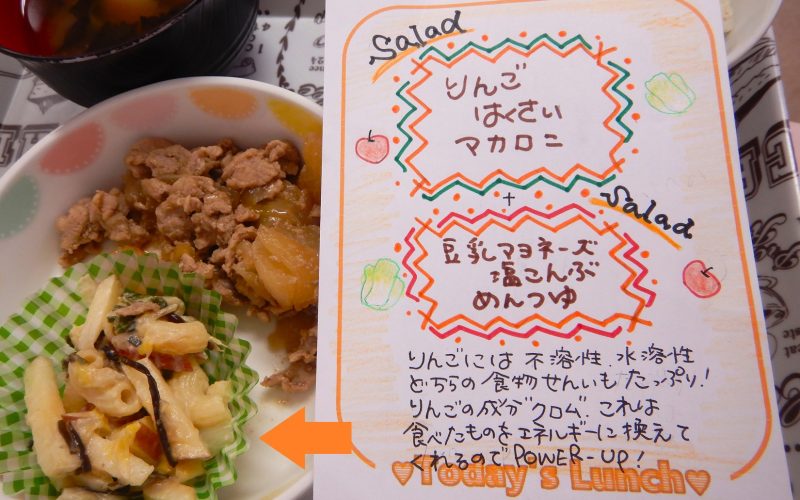 Salad
りんご
はくさい
マカロニ
+
Salad
豆乳マヨネーズ
塩こんぶ
めんつゆ
りんごには 不溶性、水溶性
どちらの食物せんいもたっぷり!
りんごの成分"クロム"、これは
食べたものをエネルギーに換えて
くれるのでPOWER-UP!
Today's Lunch